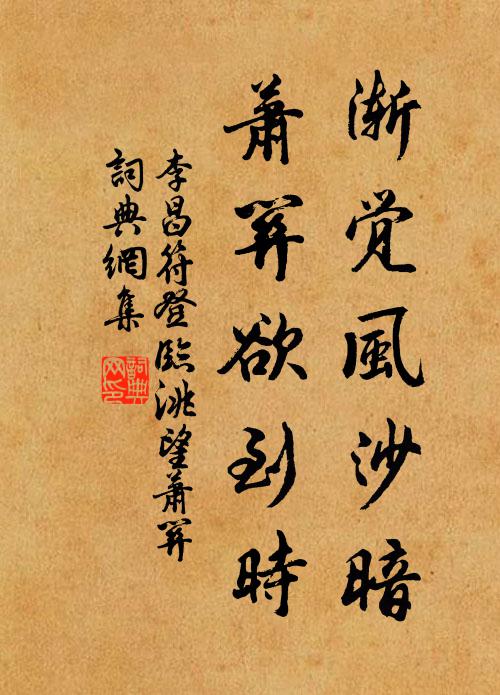 漸覺風沙暗
蕭關欲到時
李昌符登臨洮望蕭關
詞典網集
詞典
网印